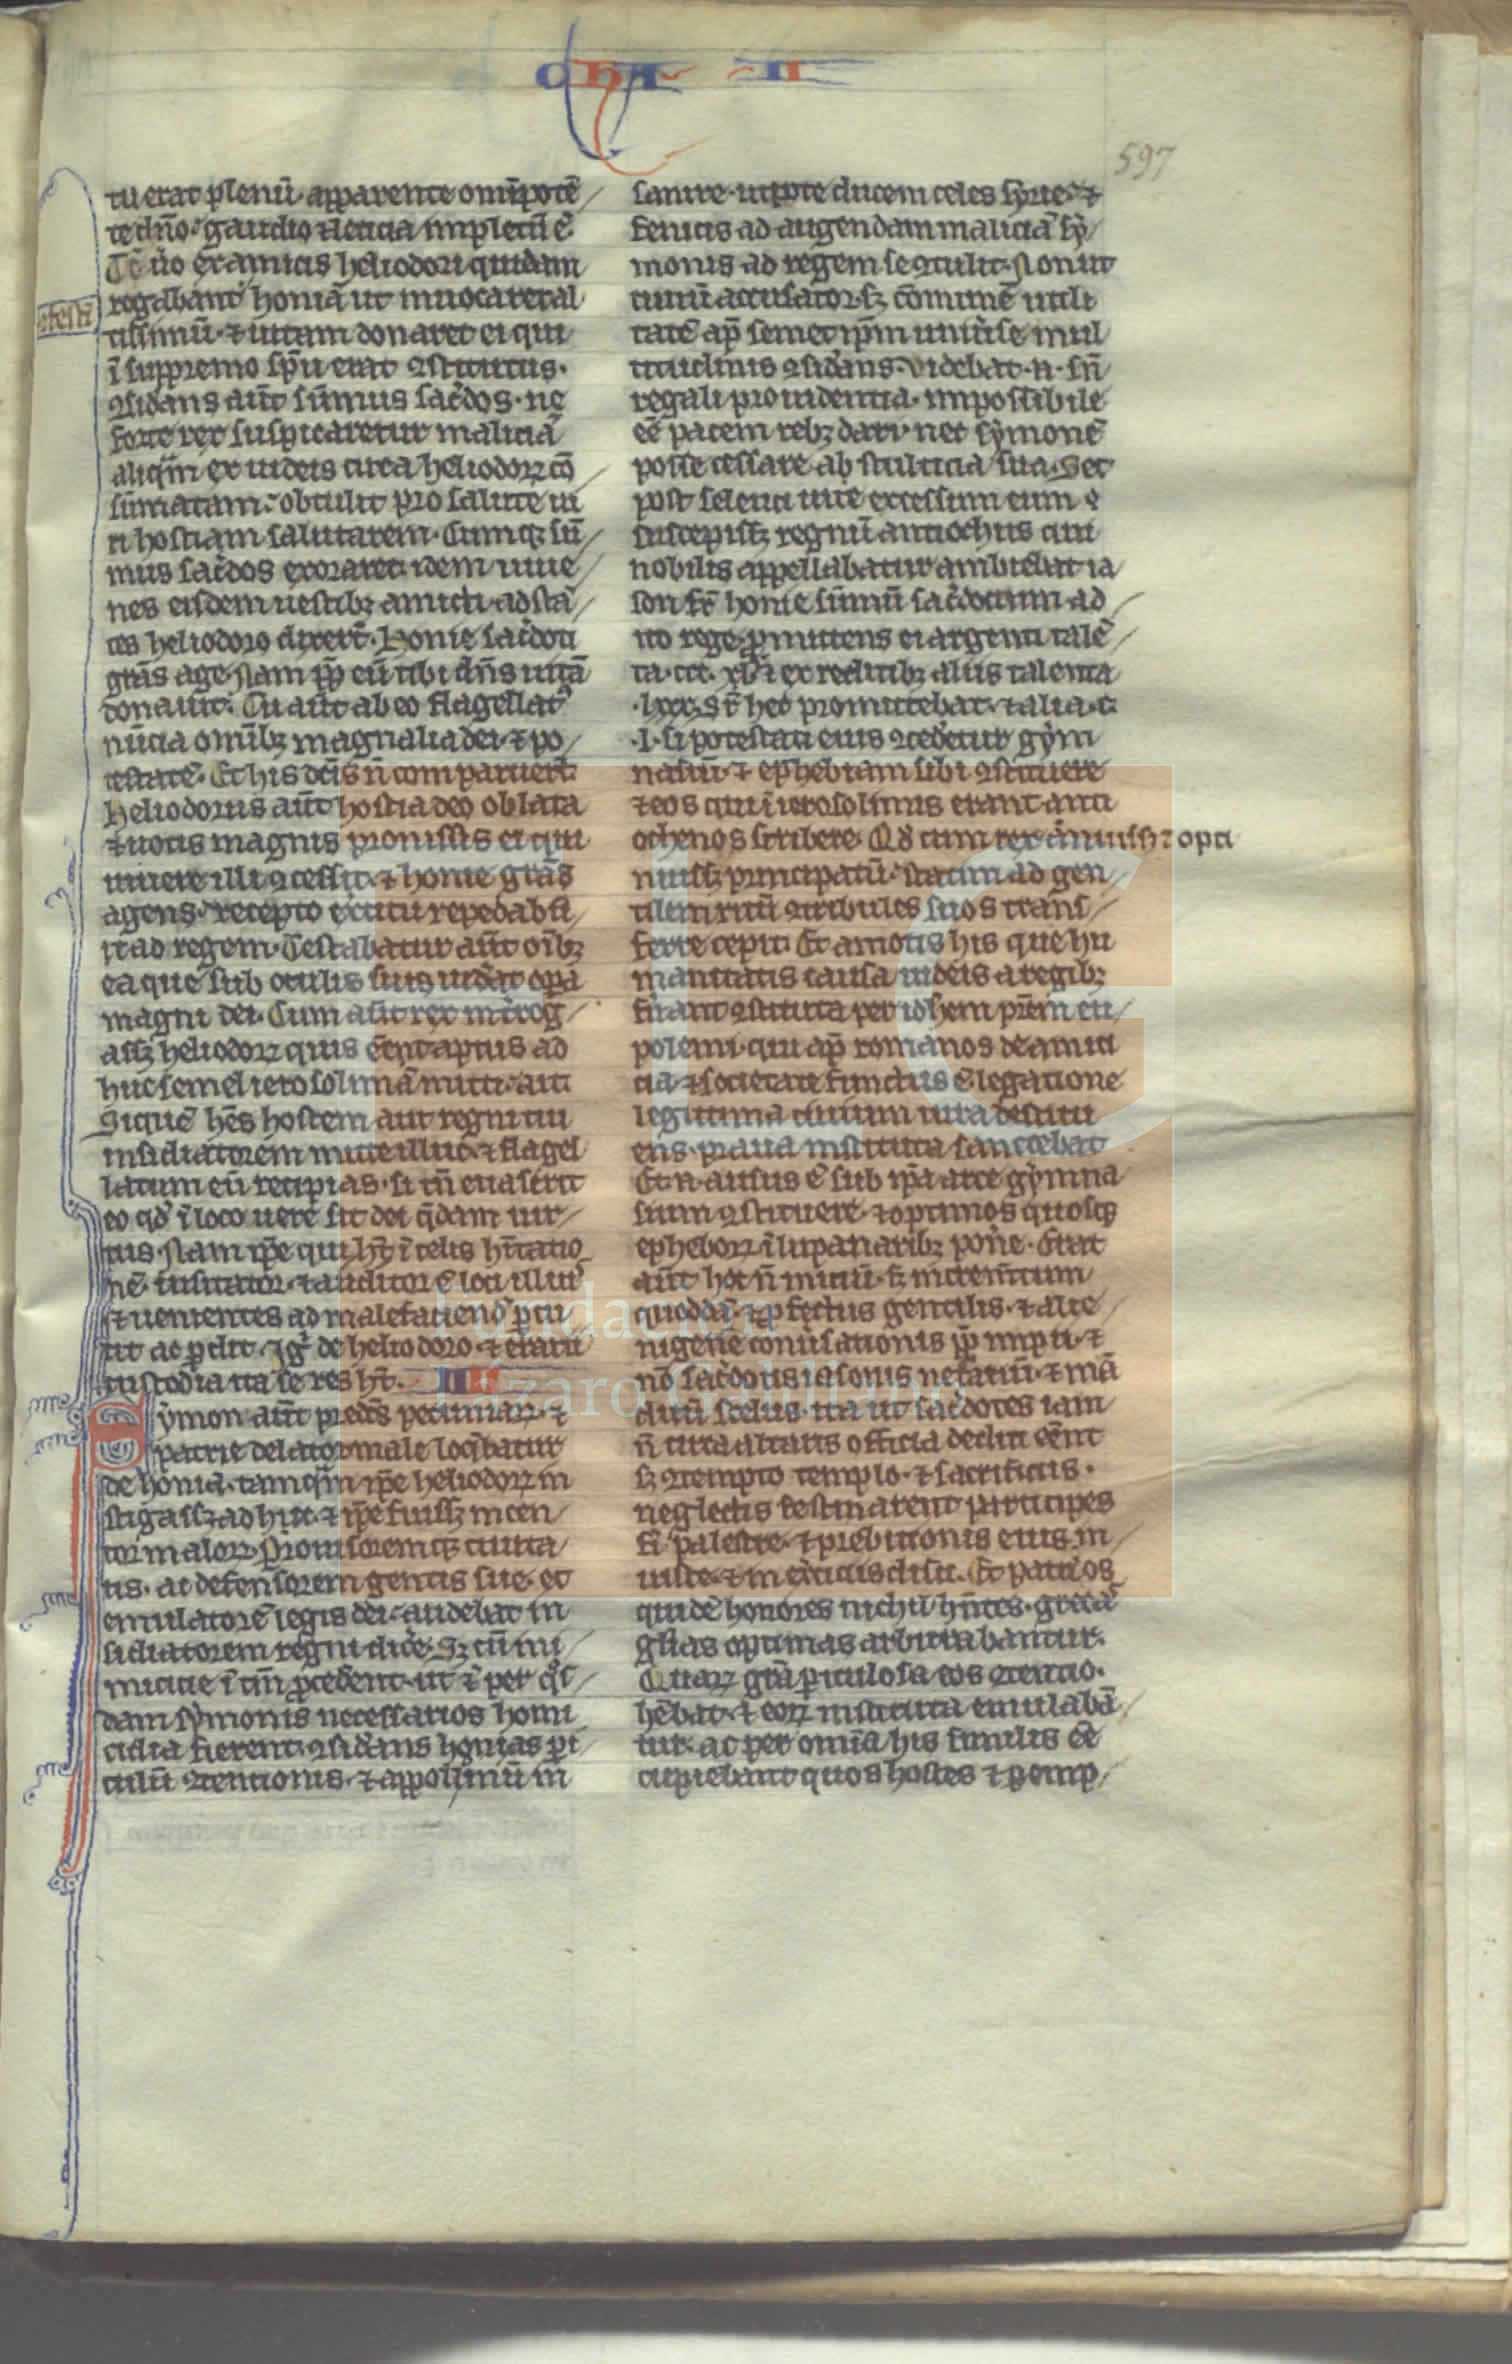 chA II
597
tu erat plenū. apparente omīpotē
te dn̄o. gaudio ⁊ leticia impletū ē
Tc̄ ũo ex amicis heliodori quidam
rogabant honiā ut inuocaret al
tissimū. ⁊ uitam donaret ei qui
ī supremo sp̄u erat ꝯstitutus.
ꝯsidans aūt sūmus sac̄dos. ne
forte rex suspicaretur maliciā
aliqm̄ ex iudeis circa heliodoꝝ cō
sūmatam. obtulit pro salute ui
ri hostiam salutarem. Cumqꝫ sū
mus sac̄dos exoraret. idem iuue
nes eisdem uestibꝫ amicti. adstā
tes heliodoro dixer̄t. Honie sac̄doti
gr̄as age. Nam ꝓp̄ eū tibi dn̄s uitā
donauit. Tu aūt ab eo flagellat᷒
nūcia omībꝫ magnalia dei. ⁊ po
testatē. Et his dc̄is n̄ comparuer̄t.
Heliodorus aūt hostia deo oblata
⁊ uotis magnis promissis ei qui
uiuere illi ꝯcessit. ⁊ honie gr̄as
agens. recepto ex̄citu repedabā
it ad regem. Testabatur aūt oībꝫ
ea que sub oculis suis uid̄at opa
magni dei. Cum aūt rex int̄rog
assꝫ heliodoꝝ quis eēt aptus ad
huc semel ierosolimā mitti. ait.
Si quē hēs hostem aut regni tui
insidiatorem mitte illuc. ⁊ flagel
latum eū recipias. si tn̄ euaserit
eo qd̓ ī loco uere sit dei q̄dam uir
tus. Nam ip̄e qui hꝫ ī celis hītatio
nē. uisitator. ⁊ adiutor ē loci illiu᷒
⁊ uenientes ad malefaciend᷒ ꝑcu
tit ac ꝑdit. Igꝰ de heliodoro. ⁊ erarii
custodia ita se res hꝫ. IIII
Sẏmon aūt pred̄s pecuniaꝝ. ⁊
patrie delator male loq̄batur
de honia. tamqm̄ ip̄e heliodoꝝ in
stigassꝫ ad hec. ⁊ ip̄e fuissꝫ incen
tor maloꝝ. Prouisoremqꝫ ciuita
tis. ac defensorem gentis sue. et
emulatorē legis dei. audebat in
sidiatorem regni dic̄e. Sꝫ cū ini
micicie ī tm̄ ꝓcederent. ut ⁊ per q̄s
dam sẏmonis necessarios homi
cidia fierent. ꝯsid̄ans honias ꝑi
culū ꝯtentionis. ⁊ appollinū in
sanire. utpote ducem celes sẏrie. ⁊
fenicis ad augendam maliciā sẏ
monis. ad regem se ꝯtulit. Non ut
ciuiū accusator. sꝫ cōmunē utili
tatē ap̄ semet ip̄m uniūse mul
titudinis ꝯsid̄ans. Videbat. n. sn̄
regali prouidentia. impossibile
eē pacem rebꝫ dari. nec sẏmonē
posse cessare ab stulticia sua. Set
post seleuci uite excessum cum
suscepissꝫ regnū antiochus qui
nobilis appellabatur. ambiebat ia
son fr̄ honie sūmū sac̄dotium. ad
ito rege. ꝓmittens ei argenti talē
ta. ccc. xl. ⁊ ex reditibꝫ aliis talenta
.lxxx. Sr̄ hec promittebat. ⁊ alia. c.
.l. si potestati eius ꝯcedetur gẏm
nasiū. ⁊ ephebiam sibi ꝯstituere
⁊ eos qui ī ierosolimis erant anti
ochenos scribere. Qd̓ cum rex ānuissꝫ ⁊ opti
nuissꝫ principatū. statim ad gen
tilem ritū ꝯtribules suos trans
ferre cepit. Et amotis his que hu
manitatis causa iudeis a regibꝫ
fūant ꝯstituta per ioh̄em pr̄em eu
polemi. qui ap̄ romanos de amici
cia ⁊ societate functus ē legatione
legittima ciuium iura destitu
ens. praua instituta sanctiebat
Et. n. ausus ē sub ip̄a arce gẏmna
sium ꝯstituere. ⁊ optimos quosqꝫ
epheboꝝ ī lupanaribꝫ pon̄e. Erat
aūt hoc n̄ iniciū. sꝫ incrementum
quoddā. ⁊ ꝓfectus gentilis. ⁊ alie
nigene conūsationis. ꝓp̄ impii. ⁊
nō sac̄dotis iasonis nefariū. ⁊ inā
ditū scelus. ita ut sac̄dotes iam
n̄ circa altaris officia dediti eēnt
sꝫ ꝯtempto templo. ⁊ sacrificiis.
neglectis festinarent participes
fi᷒ palestre. ⁊ prebitionis eius in
iuste. ⁊ in ex̄citiis disci. Et patr̄os
quidē honores nichil hn̄tes. grecā᷒
gl̄ias optimas arbitrabantur.
Quaꝝ gr̄a ꝑiculosa eos ꝯtentio.
hēbat. ⁊ eoꝝ instituta emulabā
tur. ac per omīa his similes ēe
cupiebant quos hostes ⁊ ꝑemp